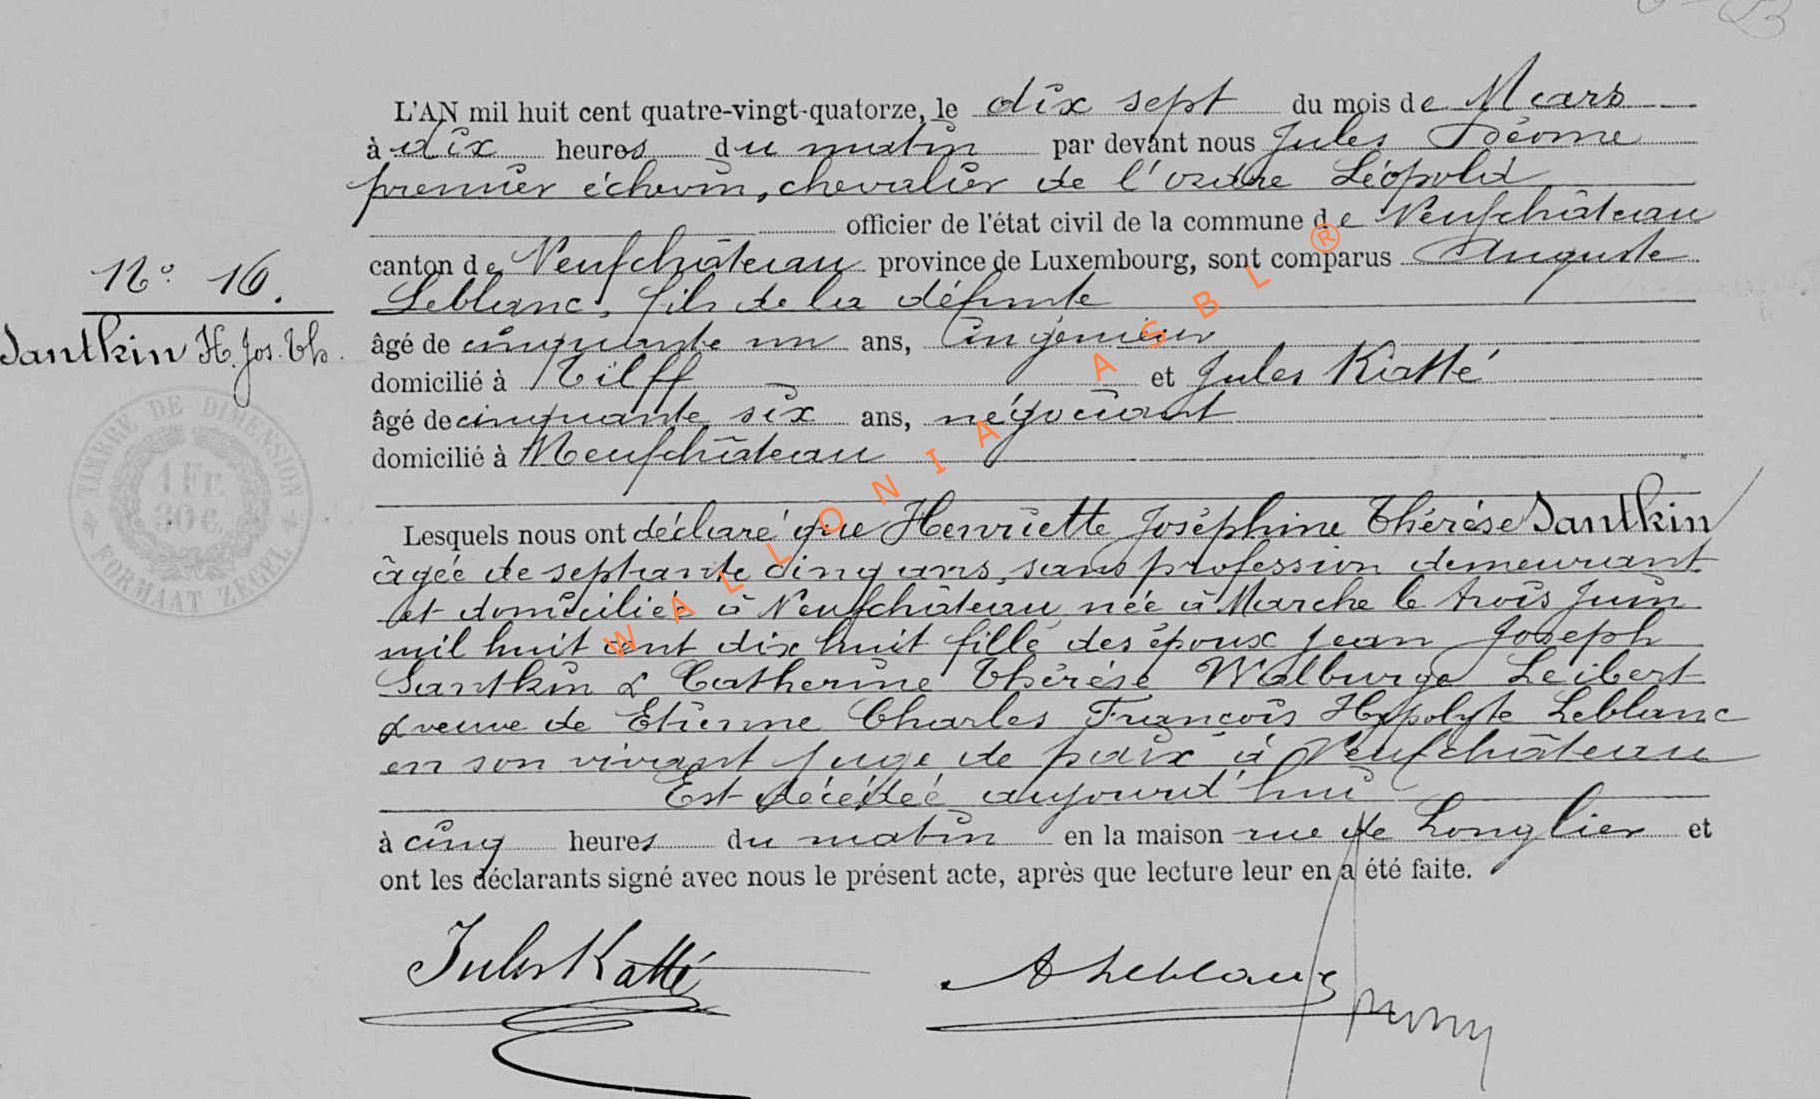 L'AN mil huit cent quatre-vingt-quatorze, le dix sept du mois de Mars
à dix heures du matin par devant nous Jules Déome
premier échevin, chevalier de l'ordre Léopold
officier de l'état civil de la commune de Neufchâteau
canton de Neufchâteau province de Luxembourg, sont comparus Auguste
Leblanc, fils de la défunte
âgé de cinquante un ans, ingénieur
domicilié à Tilff et Jules Katté
âgé de cinquante six ans, négociant
domicilié à Neufchâteau
N° 16.
Santkin H. Jos. Th.
TIMBRE DE DIMENSION
1 Fr.
30 c
FORMAAT ZEGEL
Lesquels nous ont déclaré que Henriette Joséphine Thérèse Santkin
âgée de septante cinq ans, sans profession demeurant
et domiciliée à Neufchâteau née à Marche le trois Juin
mil huit cent dix huit fille des époux Jean Joseph
Santkin & Catherine Thérèse Walburge Leibert
& veuve de Etienne Charles François Hypolyte Leblanc
en son vivant juge de paix à Neufchâteau
Est décédée aujourd'hui
à cinq heures du matin en la maison rue de Longlier et
ont les déclarants signé avec nous le présent acte, après que lecture leur en a été faite.
Jules Katté
A Leblanc
WALLONIA ASBL ®